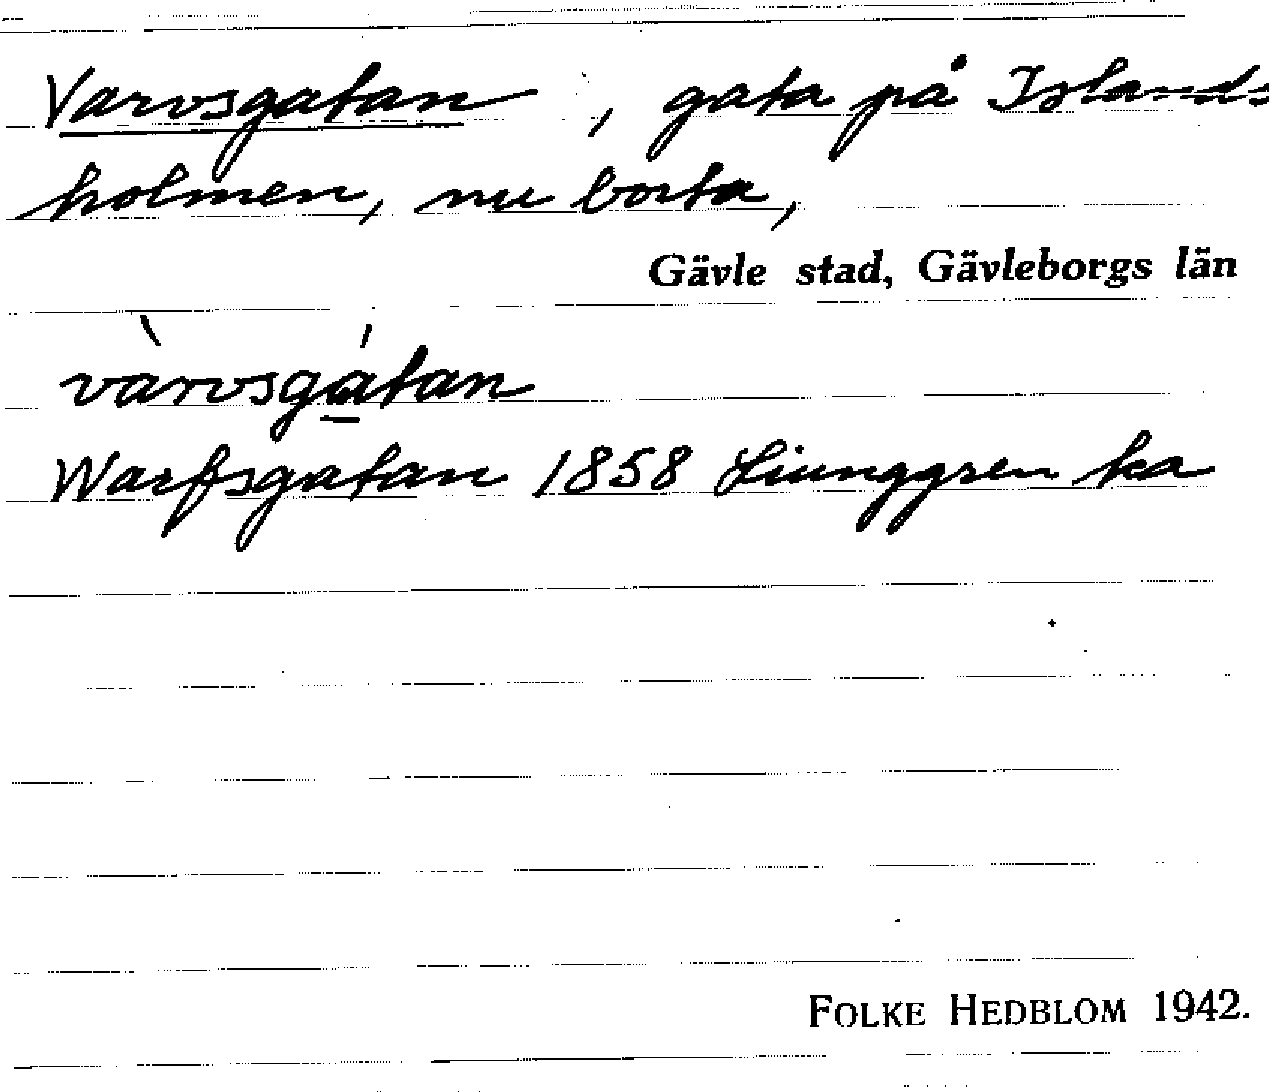 Varvsgatan , gata på Islands
holmen, nu borta,
Gävle stad, Gävleborgs län
vàrvsgátan
Warfsgatan 1858 Liunggren ka
FOLKE HEDBLOM 1942.